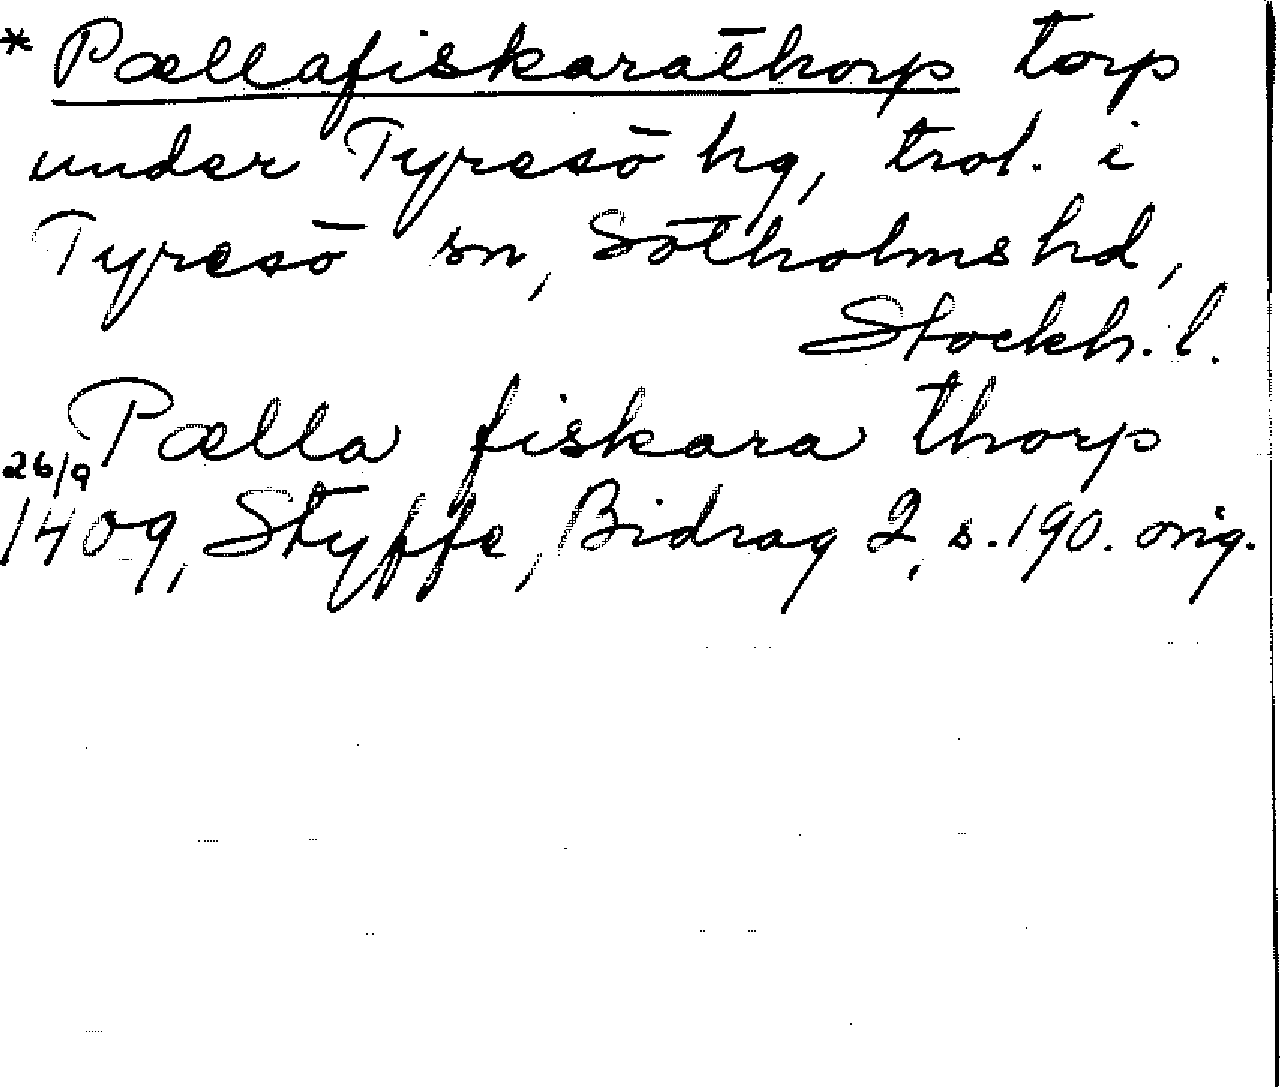 * Pællafiskarathorp torp
under Tyresö hg, trol. i
Tyresö sn, Sotholms hd,
Stockh. l.
Pælla fiskara thorp
26/9
1409, Styffe, Bidrag 2, s. 190. orig.